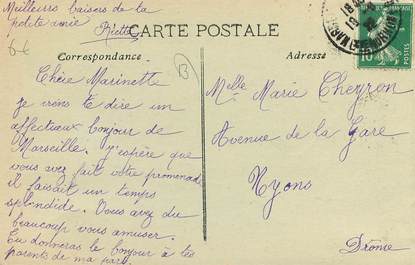 Meilleurs baisers de la
petite amie Riette
CARTE POSTALE
Correspondance
Adresse
Chère Marinette
je viens te dire un
affectueux bonjour de
Marseille. J'espère que
vous avez fait votre promenade
il faisait un temps
splendide. Vous avez du
beaucoup vous amuser.
Tu donneras le bonjour à tes
parents de ma part.
Melle Marie Cheyron
Avenue de la Gare
Nyons
Drôme
10
POSTES